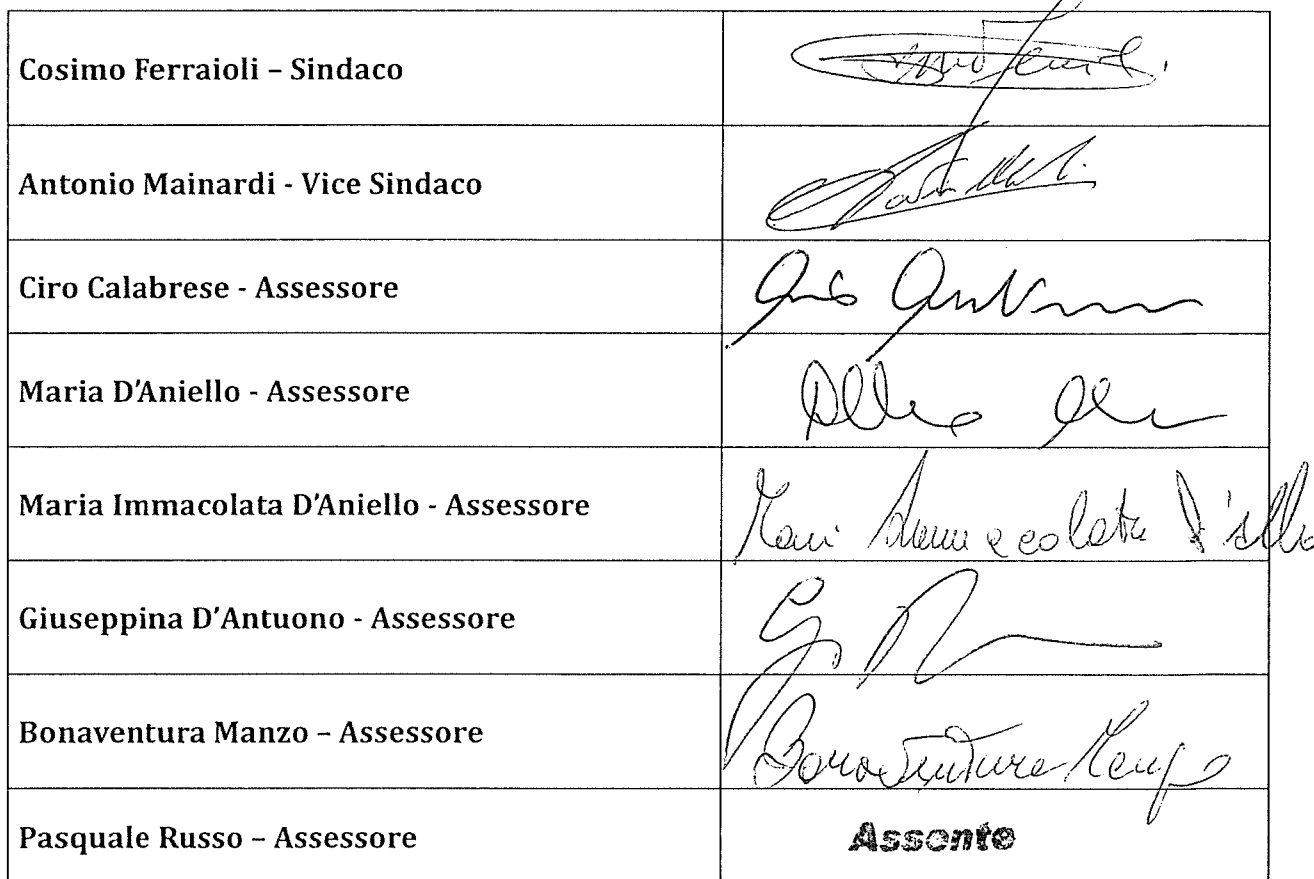 Cosimo Ferraioli – Sindaco
Antonio Mainardi - Vice Sindaco
Ciro Calabrese - Assessore
Maria D'Aniello - Assessore
Maria Immacolata D'Aniello - Assessore
Giuseppina D'Antuono - Assessore
Bonaventura Manzo – Assessore
Bonaventura Manzo
Pasquale Russo – Assessore
Assente